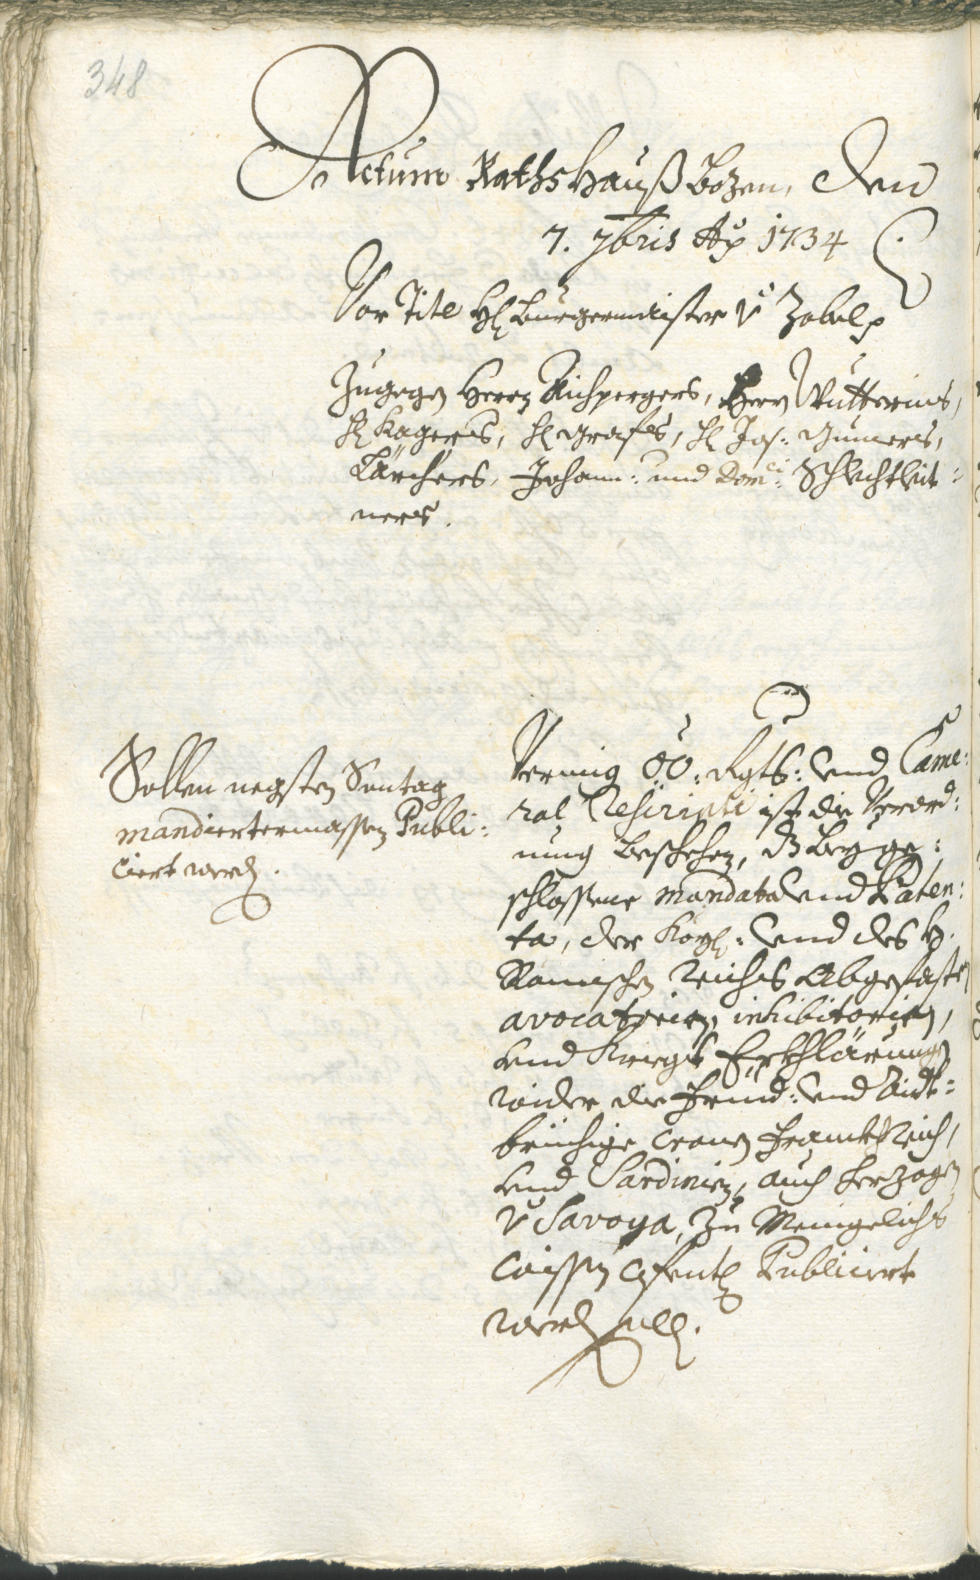 348
Actum Rathshauß Bozen, den
7. 7bris Ao 1734
Vor Titl H: Burgermaister v: Zobel p
Zugegen Herrn Aichpergers, Herrn Mutterius,
H: Kagers, H: Grafes, H: Jos: Gumers,
Lärchers, Johann: und Dom: Schlechtleit=
ners.
Sollen negsten Sontag
mandiertermassen Publi:
ciert werd.
Vermig OÖ: Rgts: vnd Came:
ral Rescripti ist die Verord:
nung beschehen, dz bey ge:
schlossene Mandata vnd Paten:
ta, der Kayl: vnd des H:
Römischen Reichs abgefaste
avocatorien, inhibitorien,
vnd Kriegs Erkhlärungen
wider die Freind: vnd Aidt=
brüchige Cronen Frankhreich,
vnd Sardinien, auch Herzogen
v: Savoya, zu Meniglichs
Wissen offentl: Publiciert
werd soll.